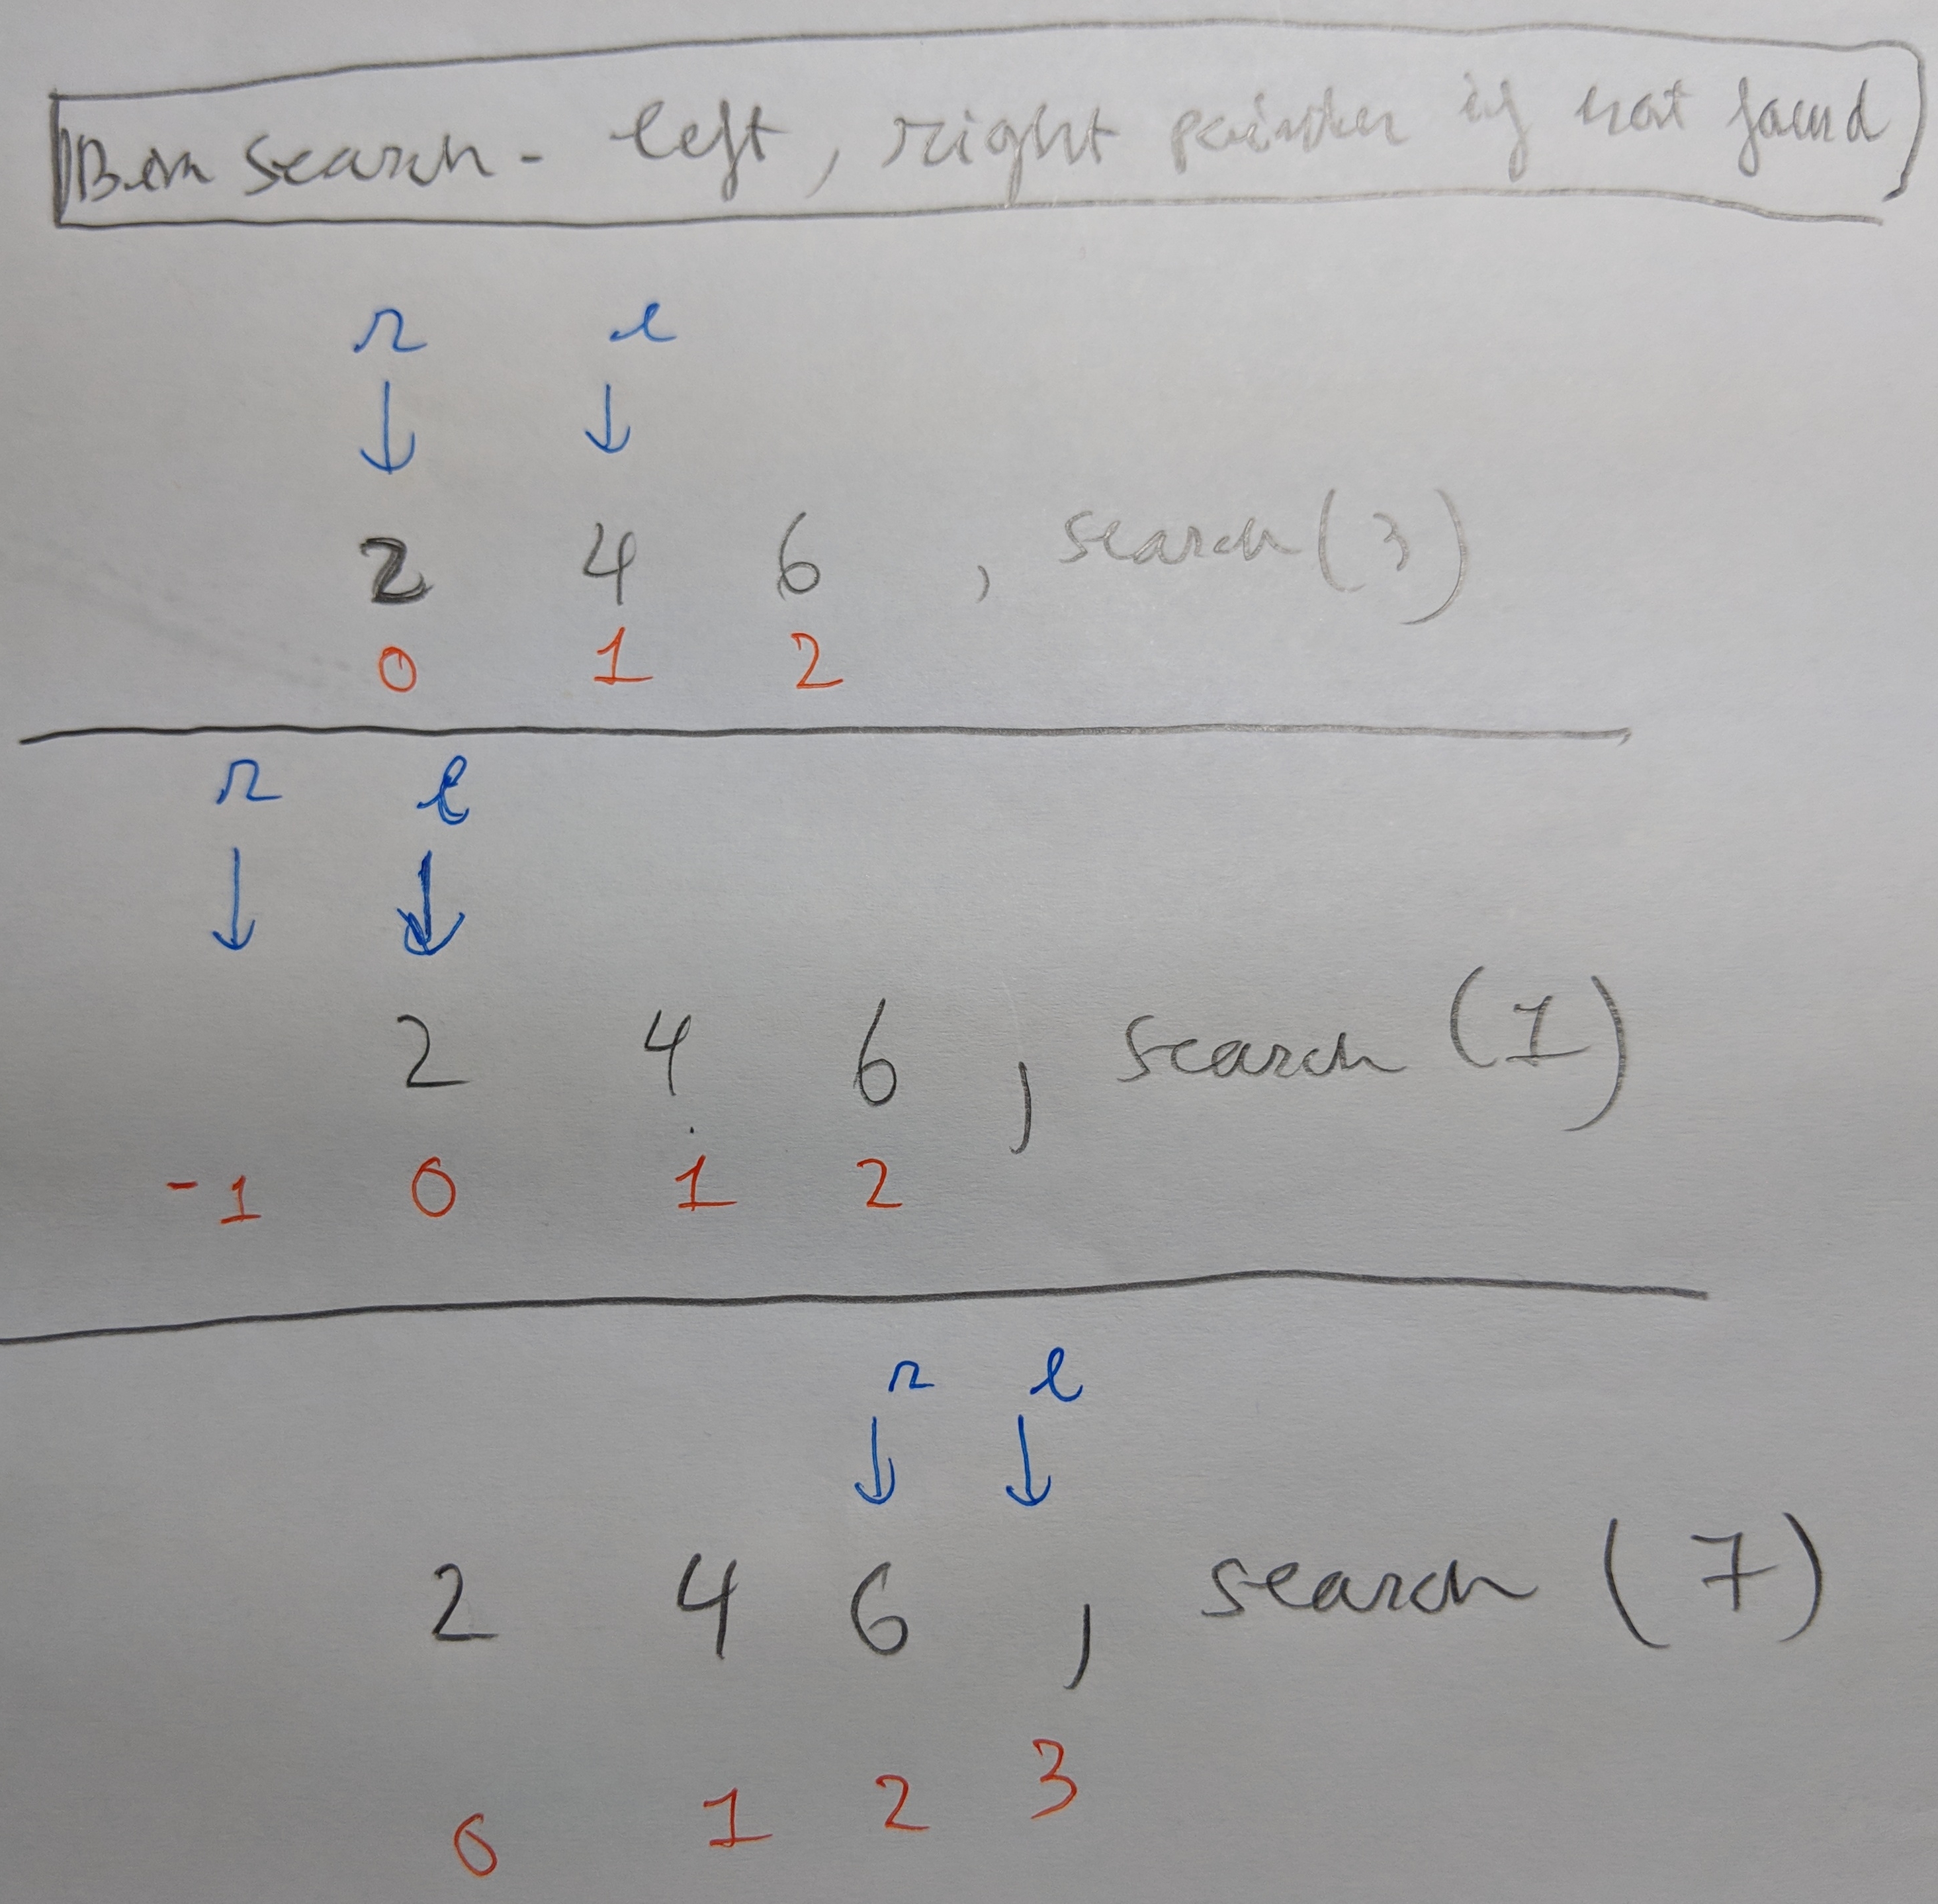 Bin search - left, right pointer if not found
r l
2 4 6 , search(3)
0 1 2
r l
2 4 6 , search (1)
-1 0 1 2
r l
2 4 6 , search (7)
0 1 2 3